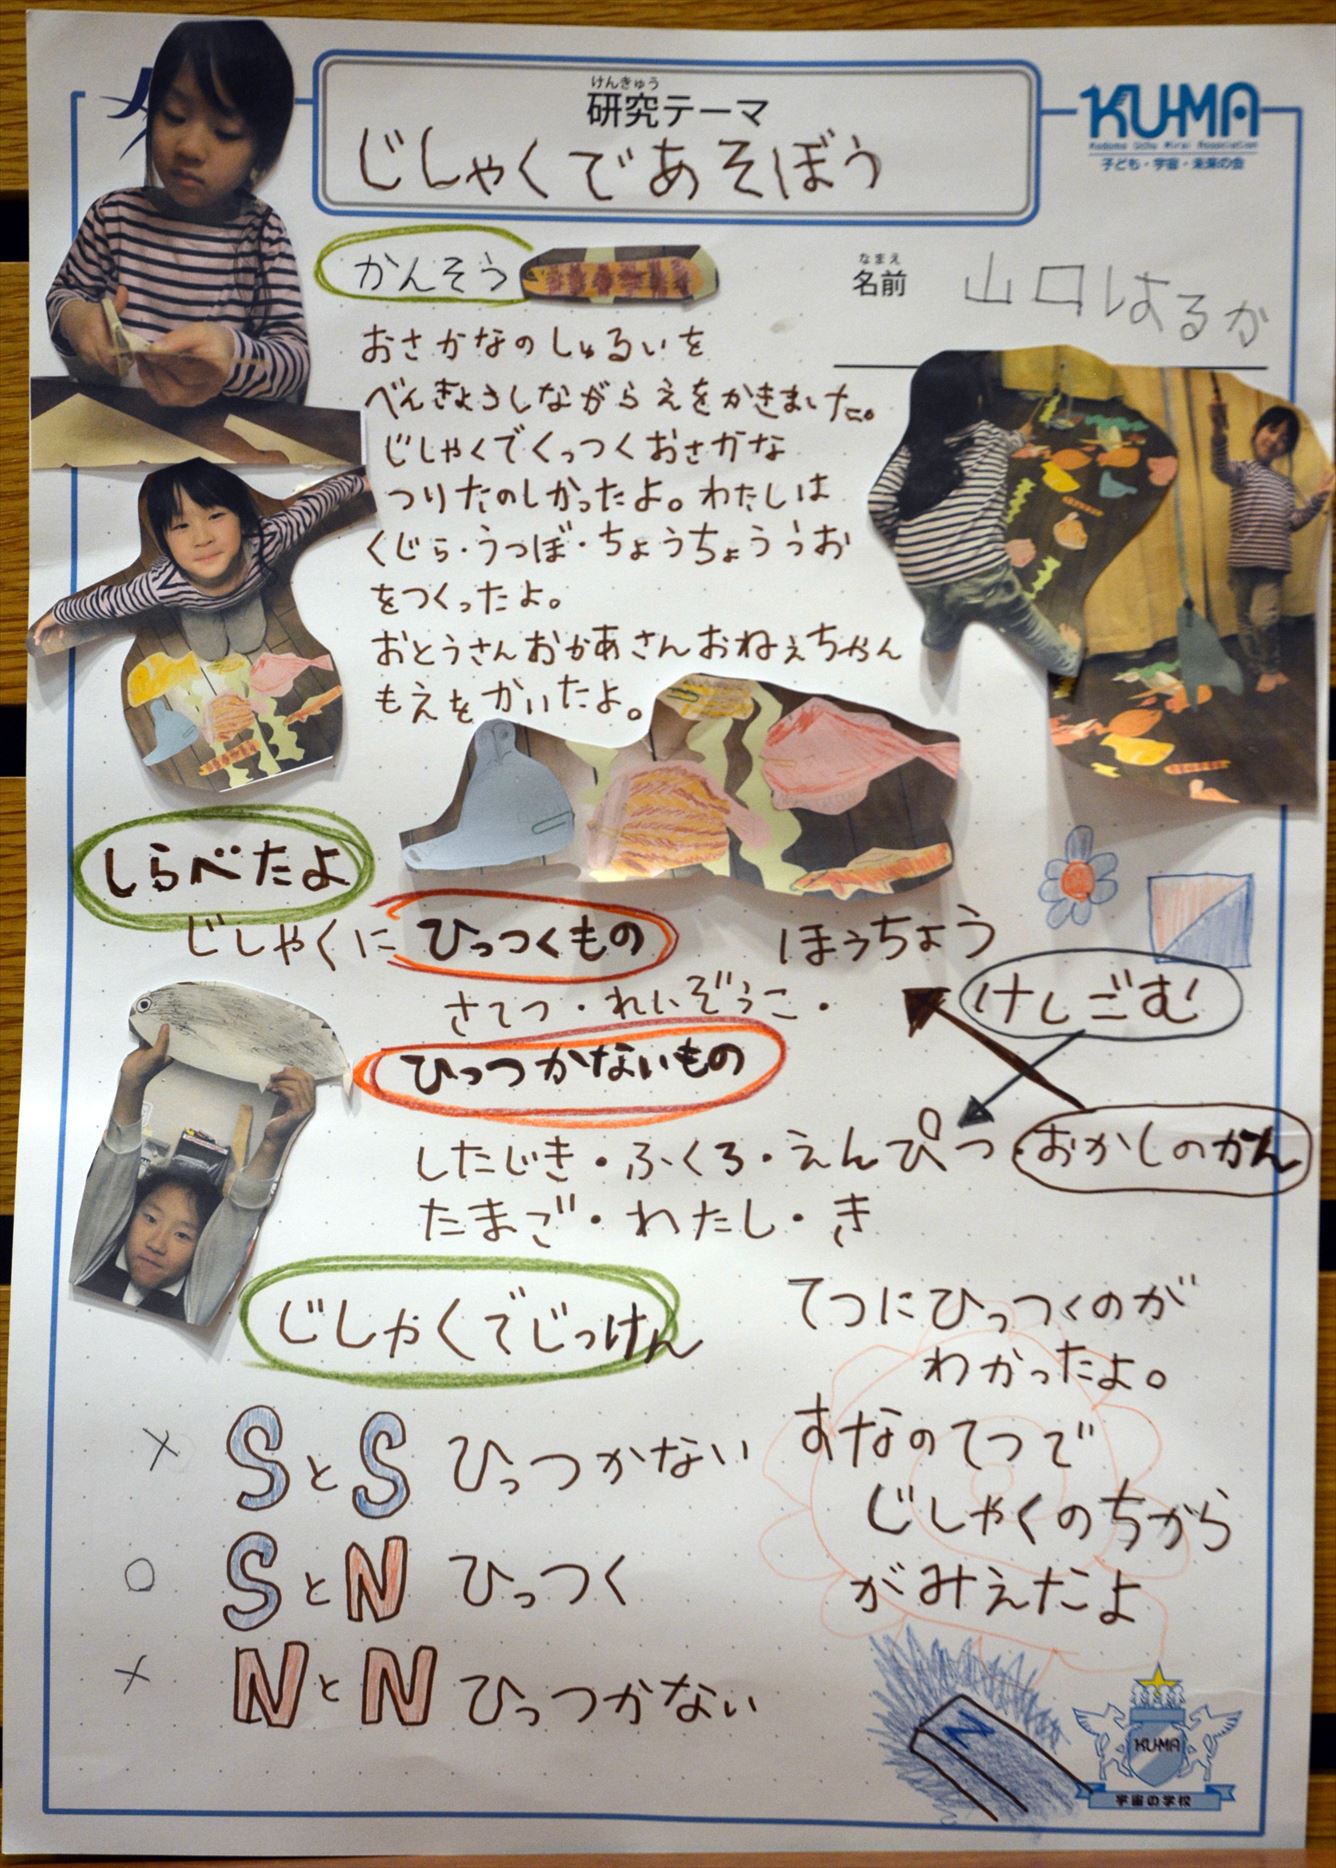 けんきゅう
研究テーマ
じしゃくであそぼう
KU-MA
Kodomo Uchu Mirai Association
子ども・宇宙・未来の会
かんそう
なまえ
名前 山口はるか
おさかなのしゅるいを
べんきょうしながらえをかきました。
じしゃくでくっつくおさかな
つりたのしかったよ。わたしは
くじら・うつぼ・ちょうちょううお
をつくったよ。
おとうさんおかあさんおねぇちゃん
もえをかいたよ。
しらべたよ
じしゃくに ひっつくもの ほうちょう
さてつ・れいぞうこ・
けしごむ
ひっつかないもの
したじき・ふくろ・えんぴつ・おかしのかん
たまご・わたし・き
じしゃくでじっけん
× SとS ひっつかない
○ SとN ひっつく
× NとN ひっつかない
てつにひっつくのが
わかったよ。
すなのてつで
じしゃくのちから
がみえたよ
N
KU-MA
宇宙の学校